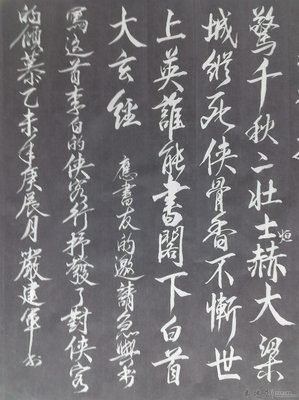 驚千秋二壮士烜赫大梁
城縱死俠骨香不慚世
上英誰能書閣下白首
大玄經
應書友的邀請急興书
寫這首李白的俠客行抒發了對俠客
的傾慕乙未年庚辰月嚴建軍书